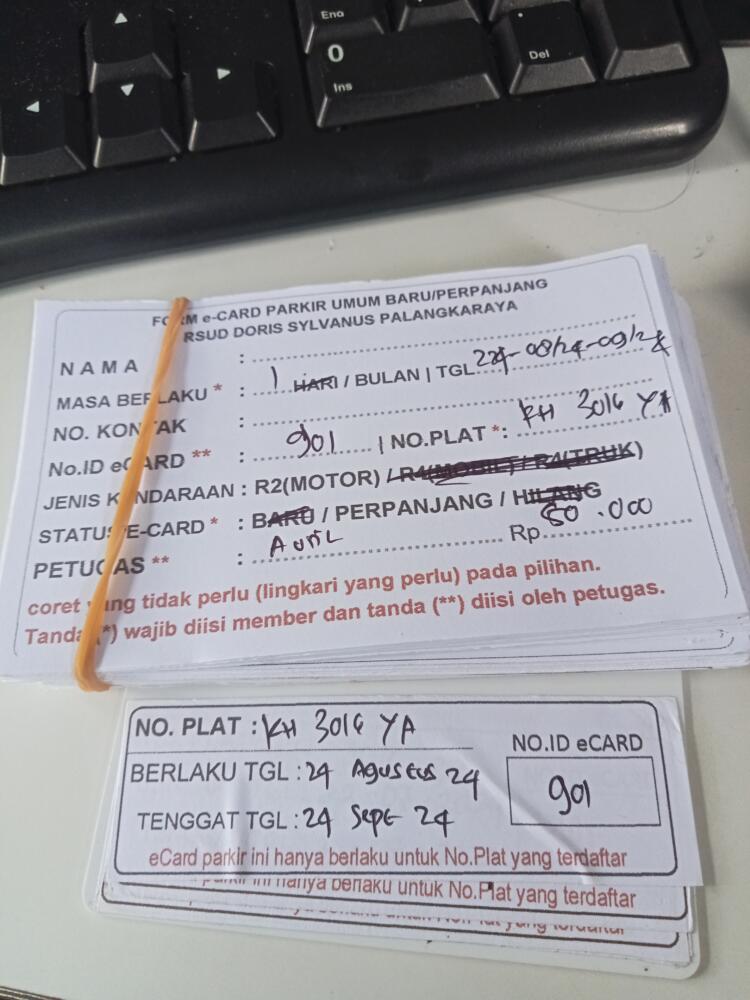 End
0
Ins
Del
FORM e-CARD PARKIR UMUM BARU/PERPANJANG
RSUD DORIS SYLVANUS PALANGKARAYA
NAMA :
MASA BERLAKU * : 1 HARI / BULAN | TGL 24-08/24-09/24
NO. KONTAK :
No.ID eCARD ** : 901 | NO.PLAT *: KH 3016 YA
JENIS KENDARAAN : R2(MOTOR) / R4(MOBIL) / R4(TRUK)
STATUS E-CARD * : BARU / PERPANJANG / HILANG
PETUGAS ** : Auril Rp 50.000
coret yang tidak perlu (lingkari yang perlu) pada pilihan.
Tanda (*) wajib diisi member dan tanda (**) diisi oleh petugas.
NO. PLAT : KH 3016 YA
NO.ID eCARD
BERLAKU TGL : 24 Agustus 24
901
TENGGAT TGL : 24 Sept 24
eCard parkir ini hanya berlaku untuk No.Plat yang terdaftar
parkir ini hanya berlaku untuk No.Plat yang terdaftar